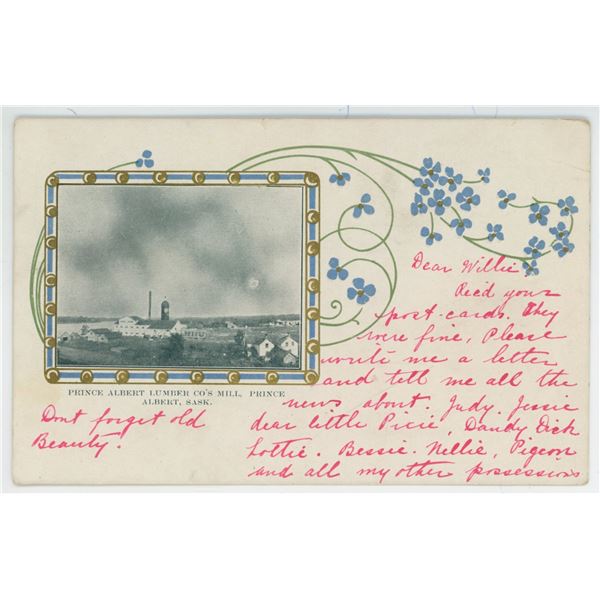 PRINCE ALBERT LUMBER CO'S MILL, PRINCE
ALBERT, SASK.
Dear Willie,
Rec'd your
post-cards. They
were fine, Please
write me a letter
and tell me all the
news about. Judy. Jessie
dear little Picie, Dandy Dick
Lottie. Bessie. Nellie, Pigeon
and all my other possessions
Dont forget old
Beauty.